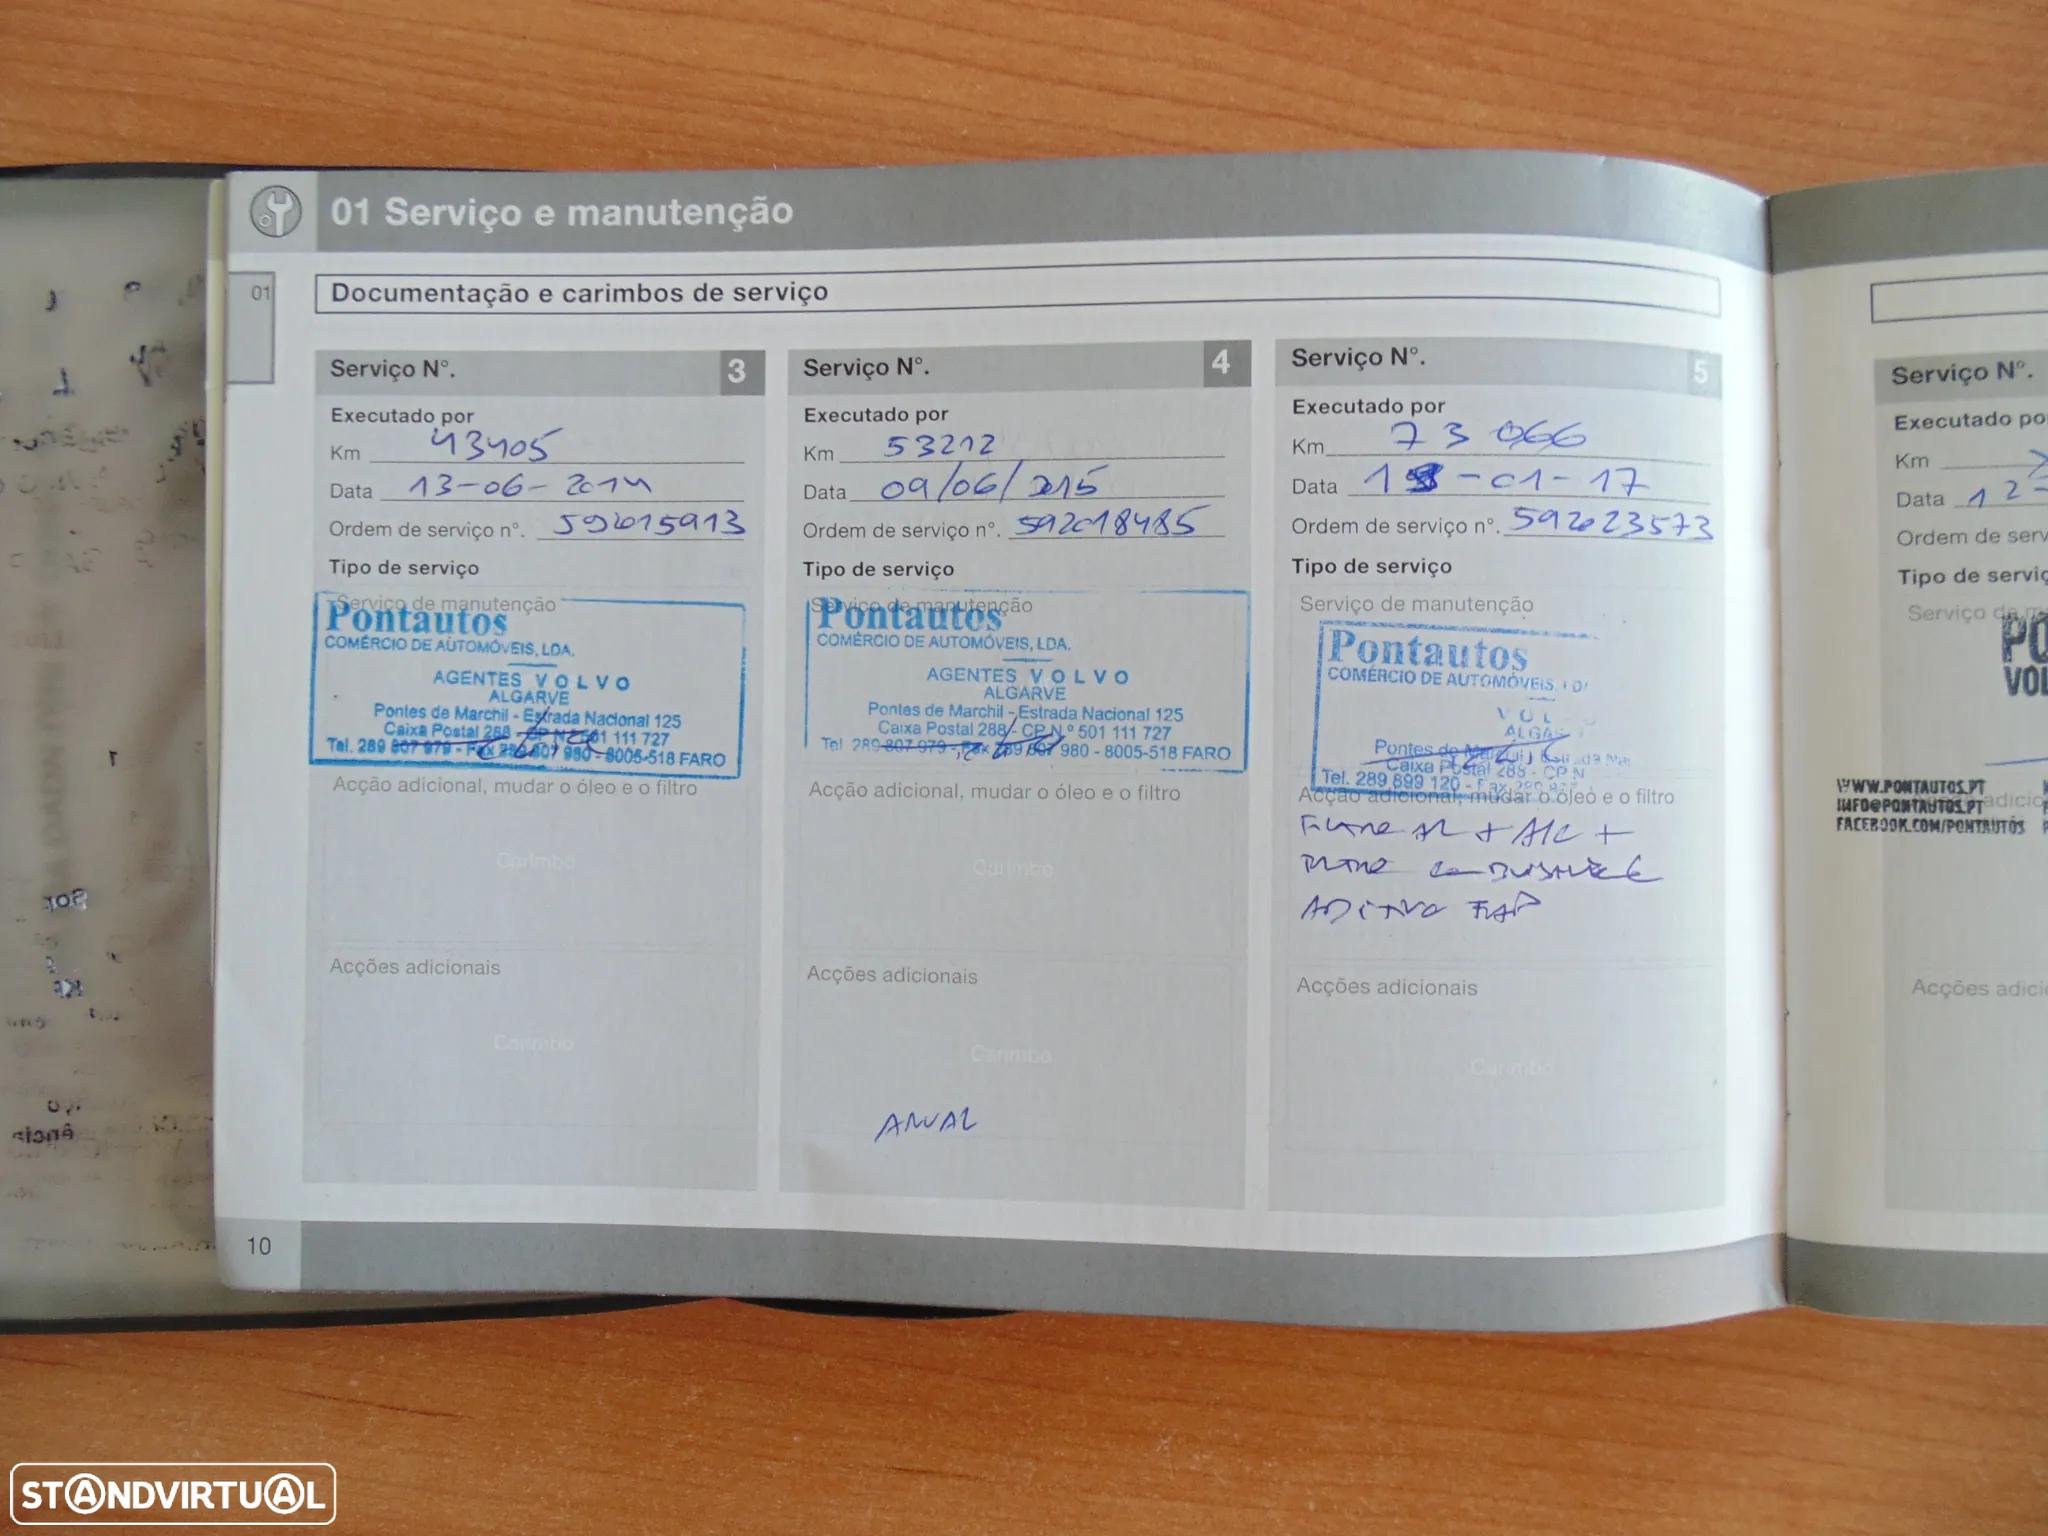 01 Serviço e manutenção
01
Documentação e carimbos de serviço
Serviço Nº. 3
Executado por
Km 43405
Data 13-06-2014
Ordem de serviço nº. 592015913
Tipo de serviço
Serviço de manutenção
Pontautos
COMÉRCIO DE AUTOMÓVEIS, LDA.
AGENTES VOLVO
ALGARVE
Pontes de Marchil - Estrada Nacional 125
Caixa Postal 288 - CP Nº 501 111 727
Tel. 289 807 979 - Fax 289 807 980 - 8005-518 FARO
Acção adicional, mudar o óleo e o filtro
Carimbo
Acções adicionais
Carimbo
Serviço Nº. 4
Executado por
Km 53212
Data 09/06/2015
Ordem de serviço nº. 592018485
Tipo de serviço
Serviço de manutenção
Pontautos
COMÉRCIO DE AUTOMÓVEIS, LDA.
AGENTES VOLVO
ALGARVE
Pontes de Marchil - Estrada Nacional 125
Caixa Postal 288 - CP N.º 501 111 727
Tel 289 807 979 - Fax 289 807 980 - 8005-518 FARO
Acção adicional, mudar o óleo e o filtro
Carimbo
Acções adicionais
Carimbo
ANUAL
Serviço Nº. 5
Executado por
Km 73 066
Data -01-17
Ordem de serviço nº. 592023573
Tipo de serviço
Serviço de manutenção
Pontautos
COMÉRCIO DE AUTOMÓVEIS,
VOL
ALGA
Pontes de
Caixa Postal 288 - CP N
Tel. 289 899 120 - Fax
Acção adicional, mudar o óleo e o filtro
+ A/C +
ADITIVO FAP
Acções adicionais
Carimbo
10
Serviço Nº.
Executado po
Km
Data 12-
Ordem de serv
Tipo de serviç
Serviço de m
PO
VOL
WWW.PONTAUTOS.PT
INFO@PONTAUTOS.PT
FACEBOOK.COM/PONTAUTOS
Acções adici
STANDVIRTUAL